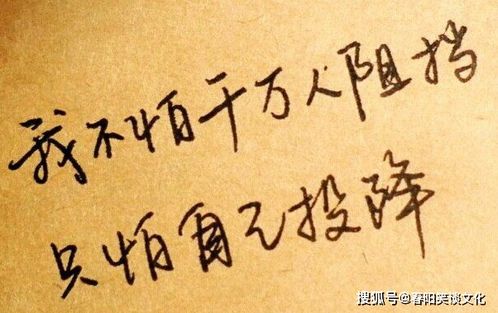 我不怕千万人阻挡
只怕自己投降
搜狐号@春阳笑谈文化